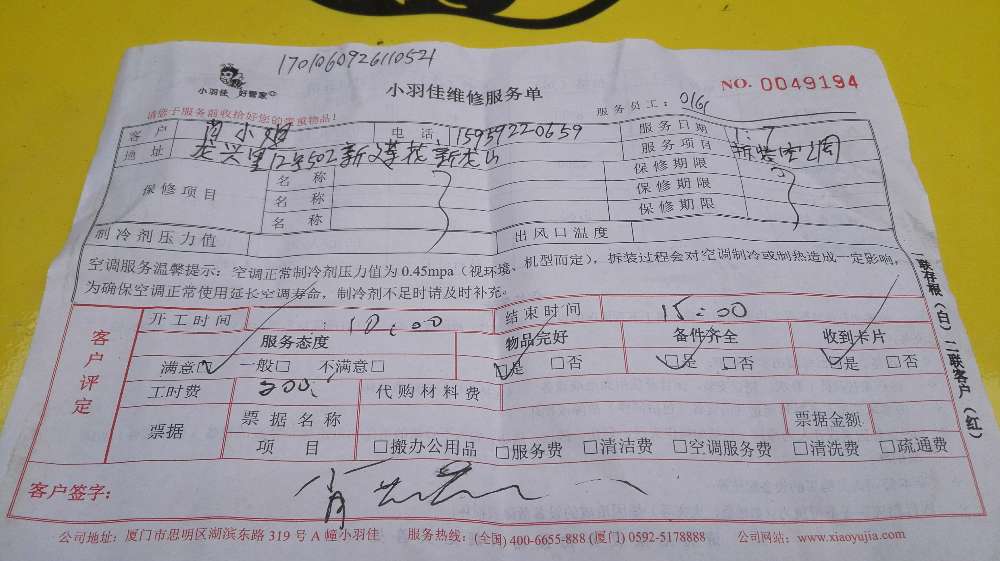 170106092611052１
小羽佳 好管家
小羽佳维修服务单
NO. 0049194
请您于服务前收拾好您的贵重物品！
服务员工：0161
客户 小姐 电话 15959220659 服务日期 1:7
地址 龙兴里12号502 服务项目 拆装空调
保修项目 名称 保修期限
名称 保修期限
名称 保修期限
制冷剂压力值 出风口温度
空调服务温馨提示：空调正常制冷剂压力值为 0.45mpa（视环境、机型而定），拆装过程会对空调制冷或制热造成一定影响，
为确保空调正常使用延长空调寿命，制冷剂不足时请及时补充。
一联存根（白）二联客户（红）
客户评定
开工时间 10:00 结束时间 15:00
服务态度 物品完好 备件齐全 收到卡片
满意□ 一般□ 不满意□ □是 □否 □是 □否 □是 □否
工时费 300 代购材料费
票据 票据名称 票据金额
项目 □搬办公用品 □服务费 □清洁费 □空调服务费 □清洗费 □疏通费
客户签字：
公司地址：厦门市思明区湖滨东路 319 号 A 幢小羽佳 服务热线：(全国) 400-6655-888 (厦门) 0592-5178888 公司网站：www.xiaoyujia.com